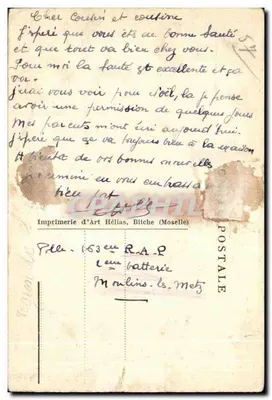 Cher Cousin et cousine
J'espère que vous ête de bonne Santé
et que tout va bien chez vous.
Pour moi la Santé est excellente et ça
va.
J'irai vous voir pour Noël, là je pense
avoir une permission de quelques jours
Mes parents m'ont écri aujourd'hui.
J'espère que ça va toujours bien à la maison
A bientôt de vos bonnes nouvelles
en vous embrassant
bien fort
Imprimerie d'Art Hélias, Bitche (Moselle)
POSTALE
153 R.A.P
2eme batterie
Moulins-les-Metz